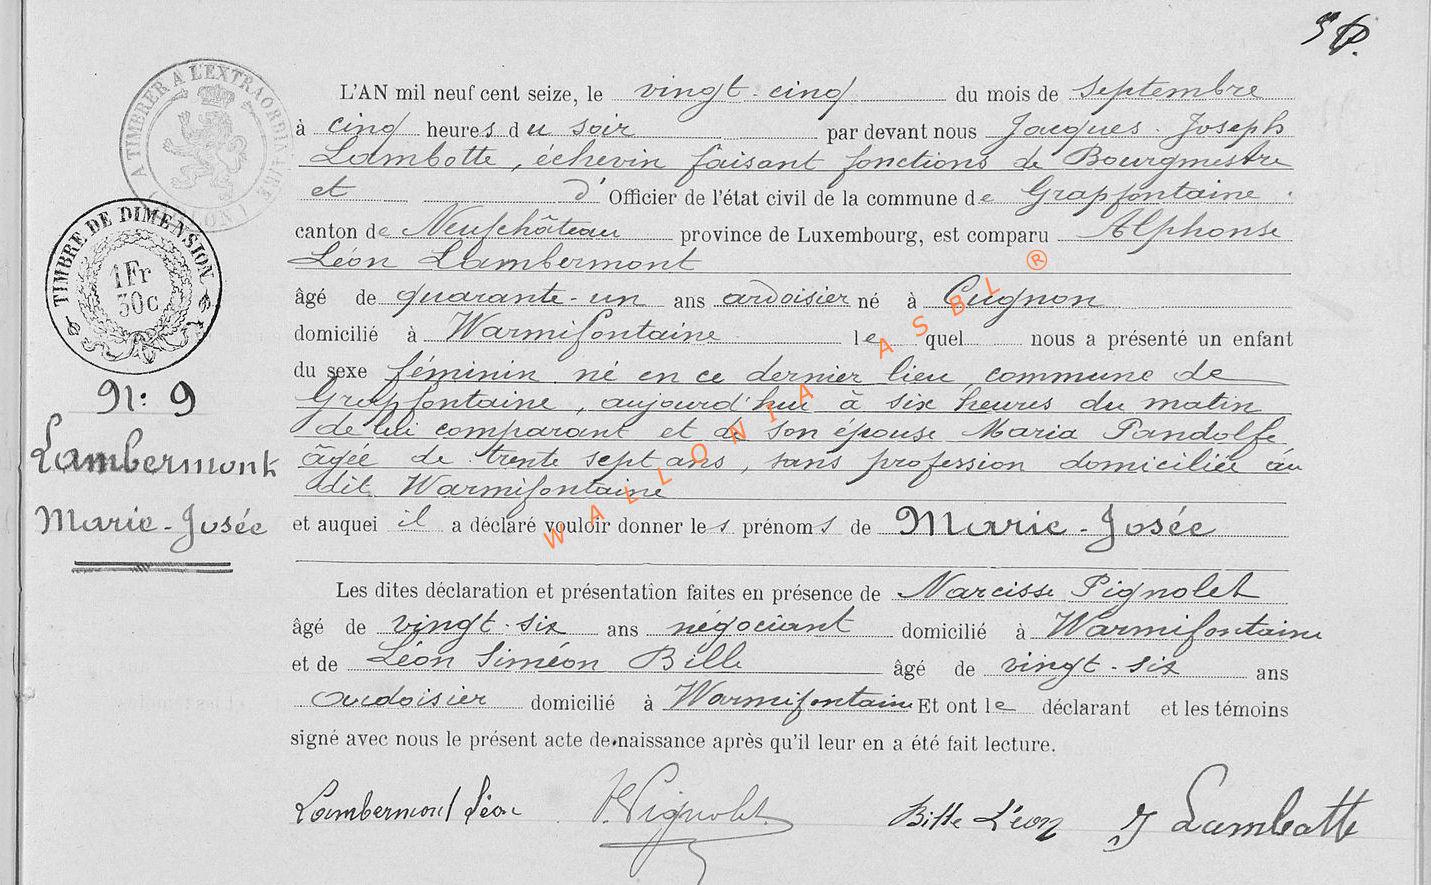 A TIMBRER A L'EXTRAORDINAIRE
TIMBRE DE DIMENSION
1Fr
30c
L'AN mil neuf cent seize, le vingt-cinq du mois de septembre
à cinq heures du soir par devant nous Jacques-Joseph
Lambotte, échevin faisant fonctions de Bourgmestre
et d'Officier de l'état civil de la commune de Grapfontaine
canton de Neufchâteau province de Luxembourg, est comparu Alphonse
Léon Lambermont
âgé de quarante-un ans ardoisier né à Cugnon
domicilié à Warmifontaine lequel nous a présenté un enfant
du sexe féminin né en ce dernier lieu, commune de
Grapfontaine, aujourd'hui à six heures du matin
de lui comparant et de son épouse Maria Pandolfe
âgée de trente sept ans, sans profession domiciliée au
dit Warmifontaine
et auquel il a déclaré vouloir donner les prénoms de Marie-Josée
N: 9
Lambermont
Marie-Josée
Les dites déclaration et présentation faites en présence de Narcisse Pignolet
âgé de vingt-six ans négociant domicilié à Warmifontaine
et de Léon Siméon Bille âgé de vingt-six ans
ardoisier domicilié à Warmifontaine Et ont le déclarant et les témoins
signé avec nous le présent acte de naissance après qu'il leur en a été fait lecture.
Lambermont Léon Pignolet Bille Léon J Lambotte
WALLONIA ASBL ®